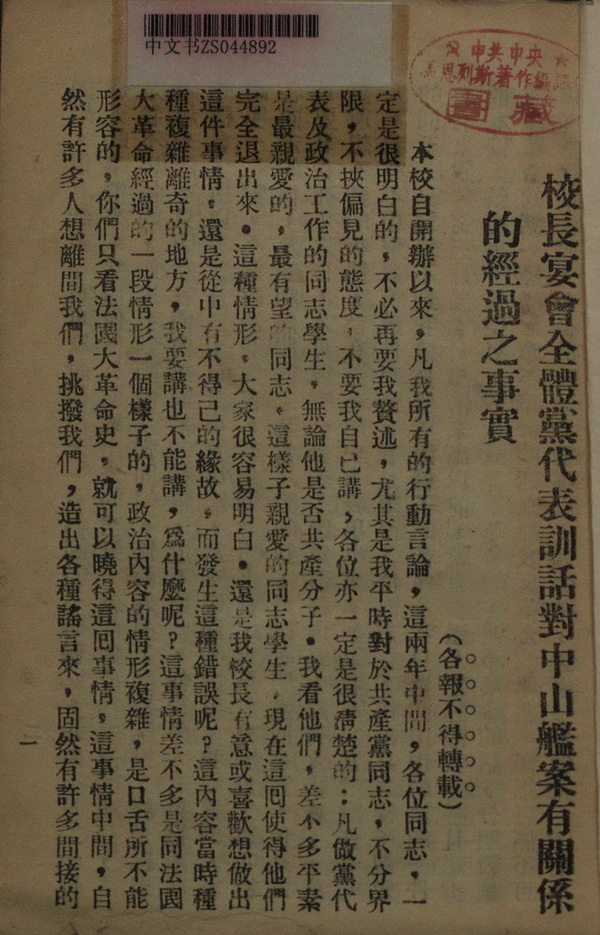 中文书ZS044892
中共中央
馬恩列斯著作編譯
藏書
校長宴會全體黨代表訓話對中山艦案有關係
的經過之事實
（各報不得轉載）
本校自開辦以來，凡我所有的行動言論，這兩年中間，各位同志，一
定是很明白的，不必再要我贅述，尤其是我平時對於共產黨同志，不分界
限，不挾偏見的態度，不要我自己講，各位亦一定是很清楚的：凡做黨代
表及政治工作的同志學生，無論他是否共產分子。我看他們，差不多平素
是最親愛的，最有望的同志。這樣子親愛的同志學生，現在這囘使得他們
完全退出來。這種情形，大家很容易明白。還是我校長有意或喜歡想做出
這件事情，還是從中有不得已的緣故，而發生這種錯誤呢？這內容當時種
種複雜離奇的地方，我要講也不能講，爲什麼呢？這事情差不多是同法國
大革命經過的一段情形一個樣子的，政治內容的情形複雜，是口舌所不能
形容的，你們只看法國大革命史，就可以曉得這囘事情，這事情中間，自
然有許多人想離間我們，挑撥我們，造出各種謠言來，固然有許多間接的
一